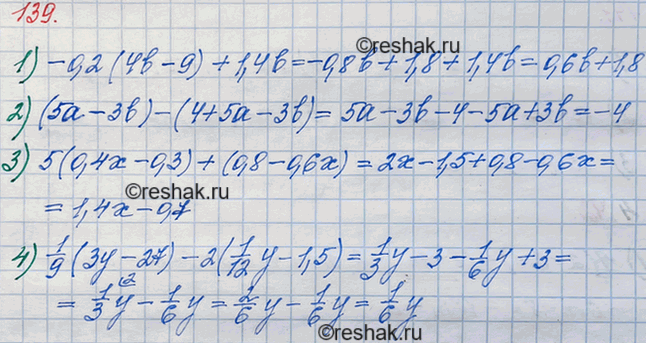 139.
©reshak.ru
1) -0,2(4b-9)+1,4b=-0,8b+1,8+1,4b=0,6b+1,8
2) (5a-3b)-(4+5a-3b)=5a-3b-4-5a+3b=-4
3) 5(0,4x-0,3)+(0,8-0,6x)=2x-1,5+0,8-0,6x=
=1,4x-0,7
©reshak.ru
4) 1/9(3y-27)-2(1/12y-1,5)=1/3y-3-1/6y+3=
=1/3^(2y-1/6y=2/6y-1/6y=1/6y
©reshak.ru